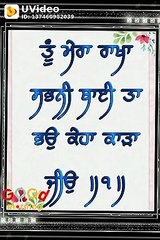 UVideo
ID:137460992039
ਤੂੰ ਮੇਰਾ ਰਾਖਾ
ਸਭਨੀ ਥਾਈ ਤਾ
ਭਉ ਕੇਹਾ ਕਾੜਾ
ਜੀਉ ॥੧॥